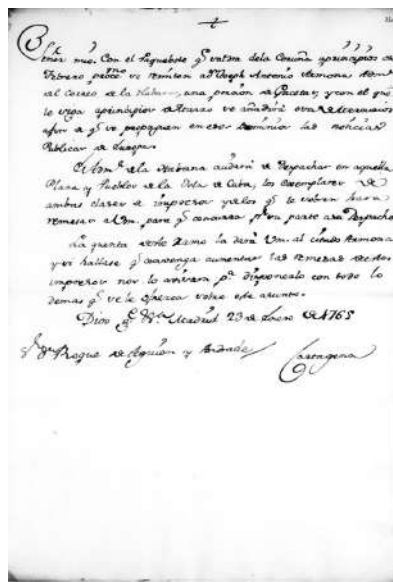 Señor mio. Con el Paquebote q.e saldra de la Coruña a principios de
Febrero proc.mo se remiten a D.n Joseph Antonio Armona Adm.or
del Correo de la Habana, una porcion de Gacetas, y con el que
le siga a principios de Marzo se añadirá otra de Mercurios
afin de q.e se propaguen en esos Dominios las noticias
Publicas de Europa.
El Adm.or de la Habana cuidará de Despachar en aquella
Plaza y Pueblos de la Isla de Cuba, los exemplares de
ambas clases de impresos y de los q.e le sobren hará
remesas a Vm. para q.e concurra p.r su parte a su Despacho
La quenta de este Ramo la dará Vm. al citado Armona
y si hallase q.e convenga aumentar las remesas de estos
impresos nos lo avisará p.a disponerlo con todo lo
demas q.e se le ofrezca sobre este asunto.
Dios g.e Madrid 23 de Enero de 1765
S.r D.n Roque de Aguiar y Andrade Cartagena